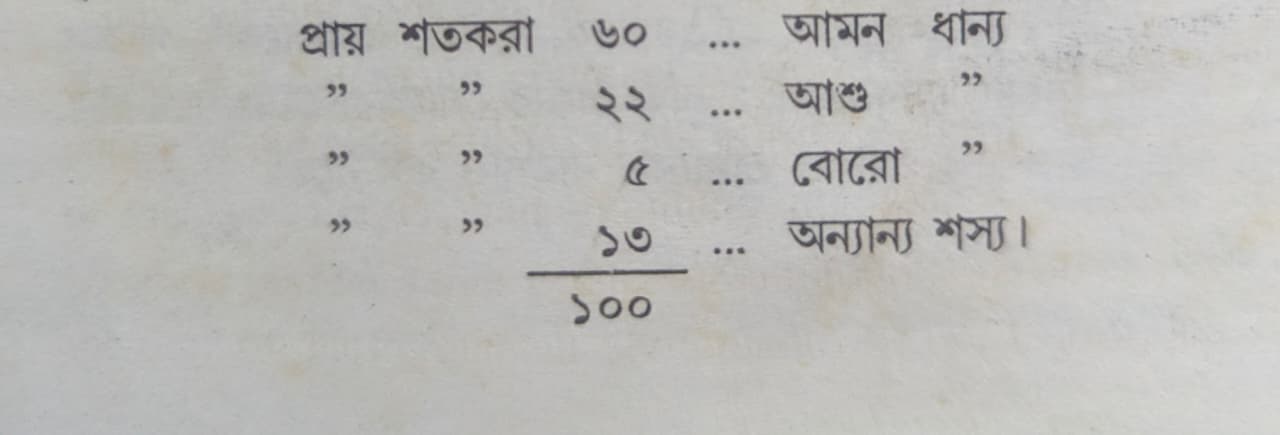 প্রায় শতকরা ৬০ ... আমন ধান্য
” ” ২২ ... আশু ”
” ” ৫ ... বোরো ”
” ” ১৩ ... অন্যান্য শস্য।
১০০